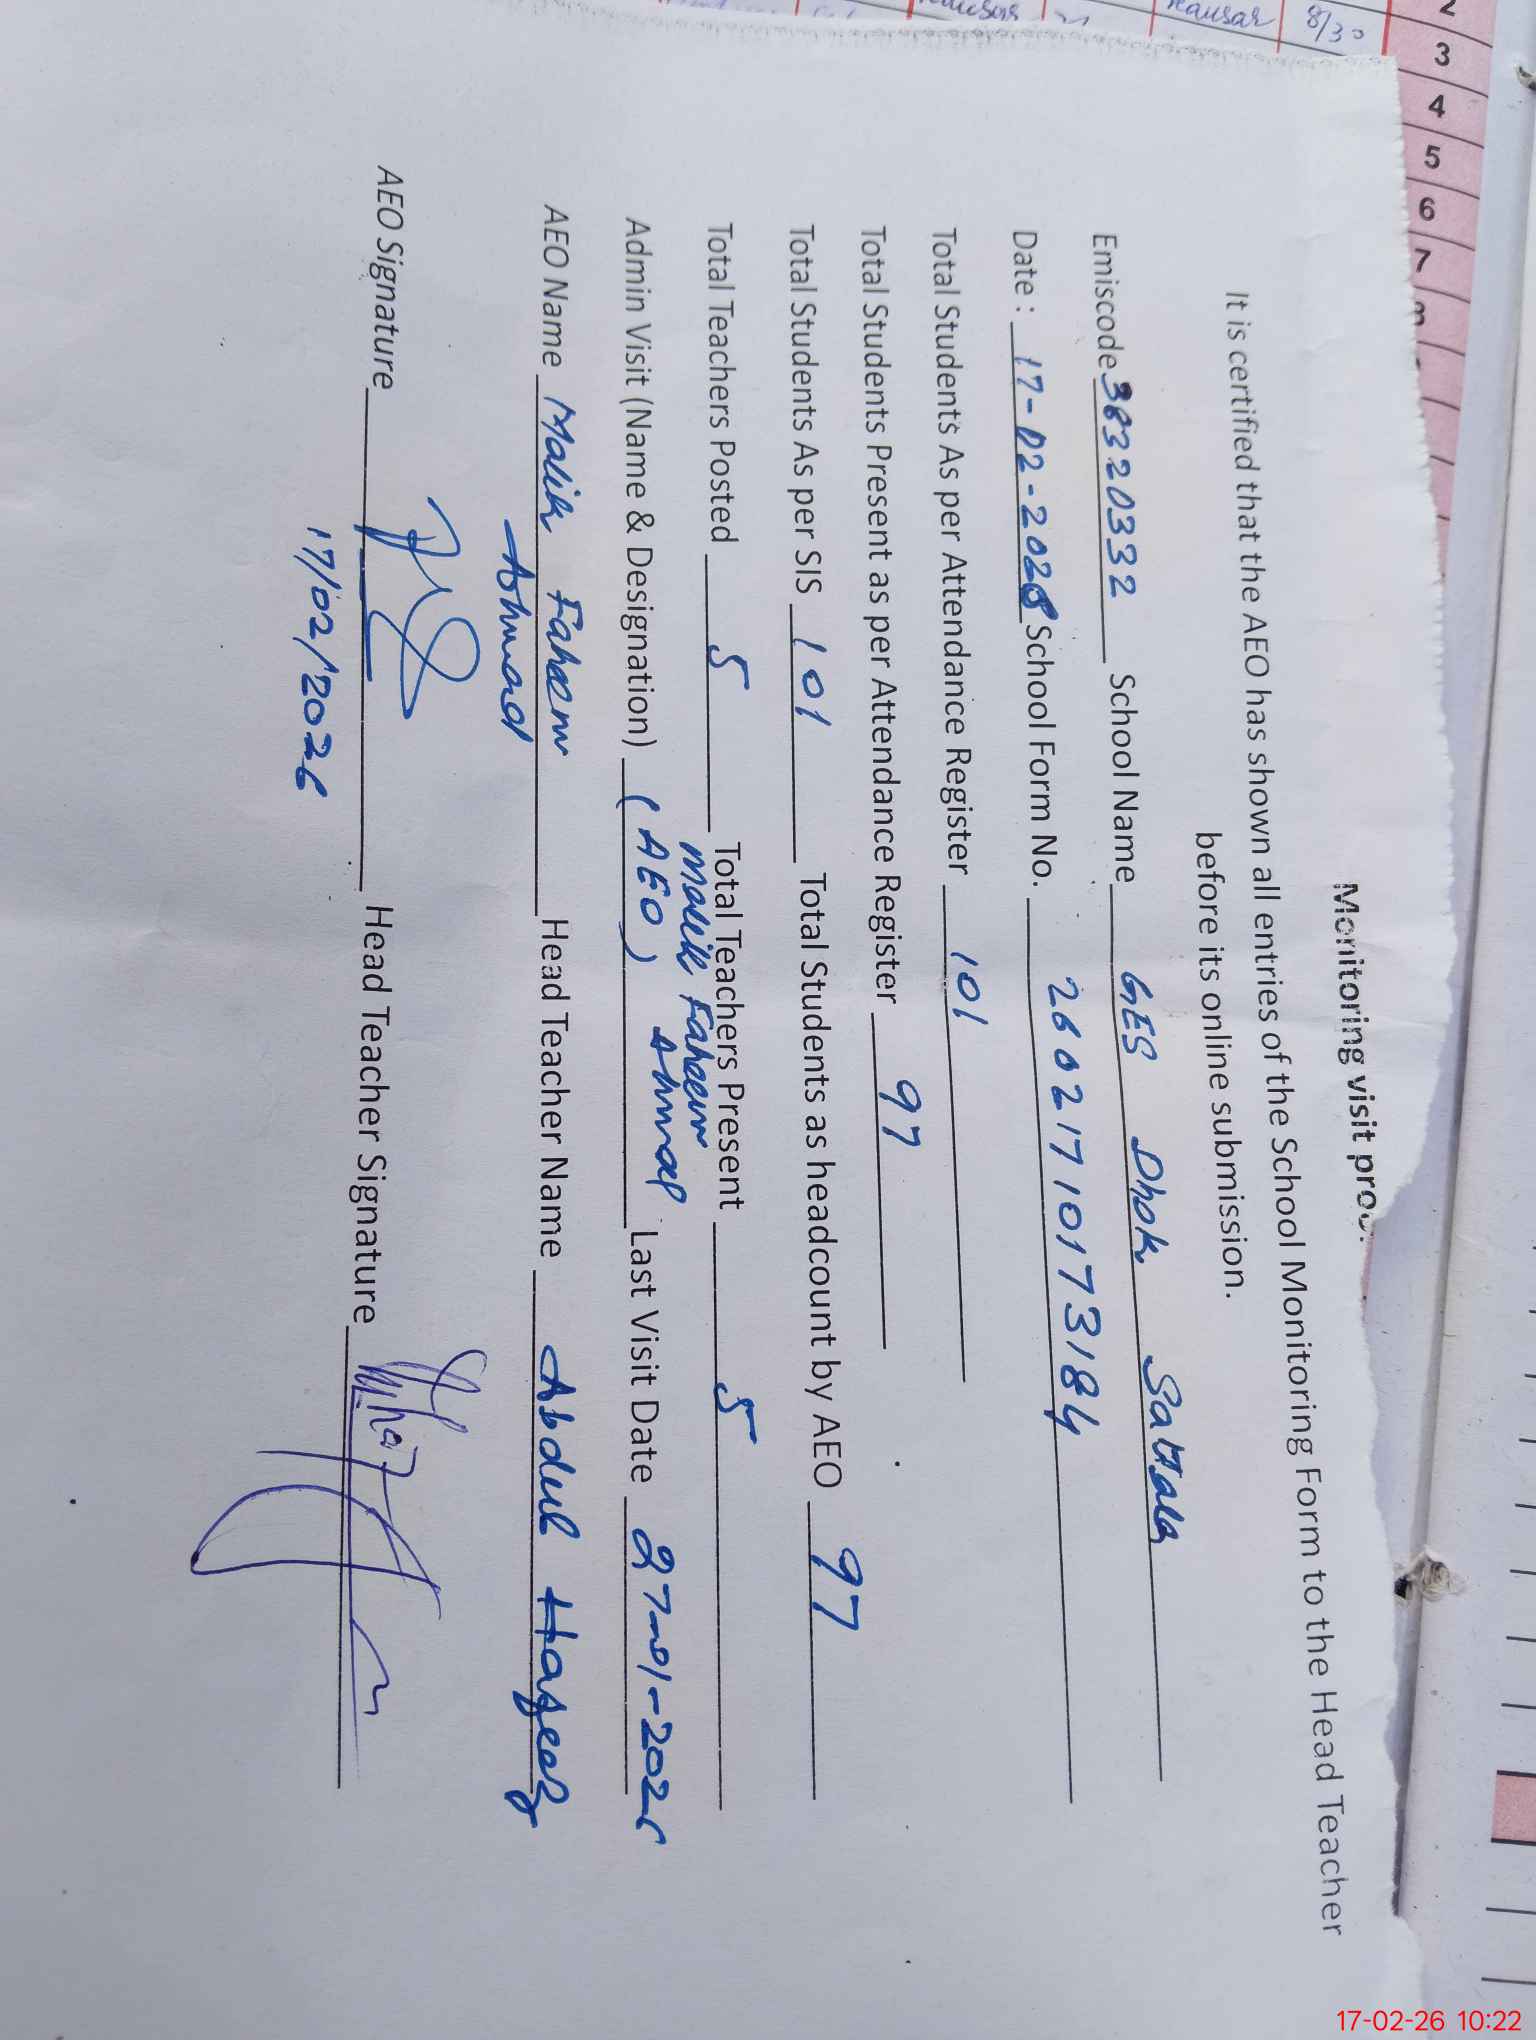 Monitoring visit proo
It is certified that the AEO has shown all entries of the School Monitoring Form to the Head Teacher
before its online submission.
Emiscode 38320332 School Name GES Dhok Sattala
Date : 17-02-2026 School Form No. 26021710173184
Total Students As per Attendance Register 101
Total Students Present as per Attendance Register 97
Total Students As per SIS 101 Total Students as headcount by AEO 97
Total Teachers Posted 5 Total Teachers Present 5
Admin Visit (Name & Designation) (AEO) Malik Faheem Ahmad Last Visit Date 27-01-2026
AEO Name Malik Faheem Ahmad Head Teacher Name Abdul Haseeb
AEO Signature Head Teacher Signature
17/02/2026
kausar 8/30
2
3
4
5
6
7
17-02-26 10:22